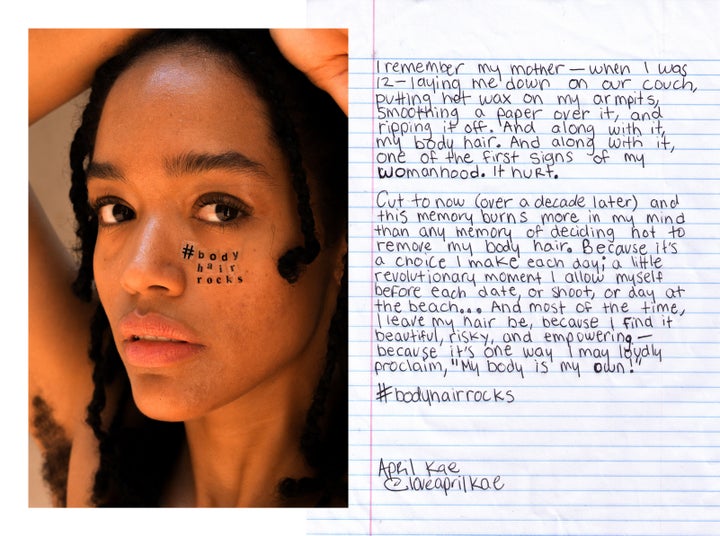 #body
hair
rocks
I remember my mother – when I was
12 – laying me down on our couch,
putting hot wax on my armpits,
smoothing a paper over it, and
ripping it off. And along with it,
my body hair. And along with it,
one of the first signs of my
womanhood. It hurt.
Cut to now (over a decade later) and
this memory burns more in my mind
than any memory of deciding not to
remove my body hair. Because it's
a choice I make each day; a little
revolutionary moment I allow myself
before each date, or shoot, or day at
the beach... And most of the time,
I leave my hair be, because I find it
beautiful, risky, and empowering –
because it's one way I may loudly
proclaim, "My body is my own!"
#bodyhairrocks
April Kae
@loveaprilkae